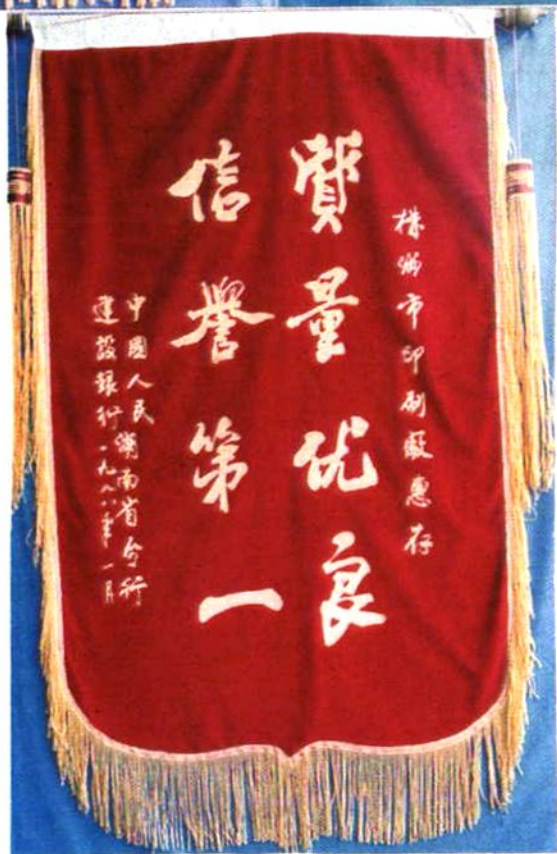 株洲市印刷厰惠存
質量优良
信譽第一
中國人民
建設銀行湖南省分行
一九八八年一月